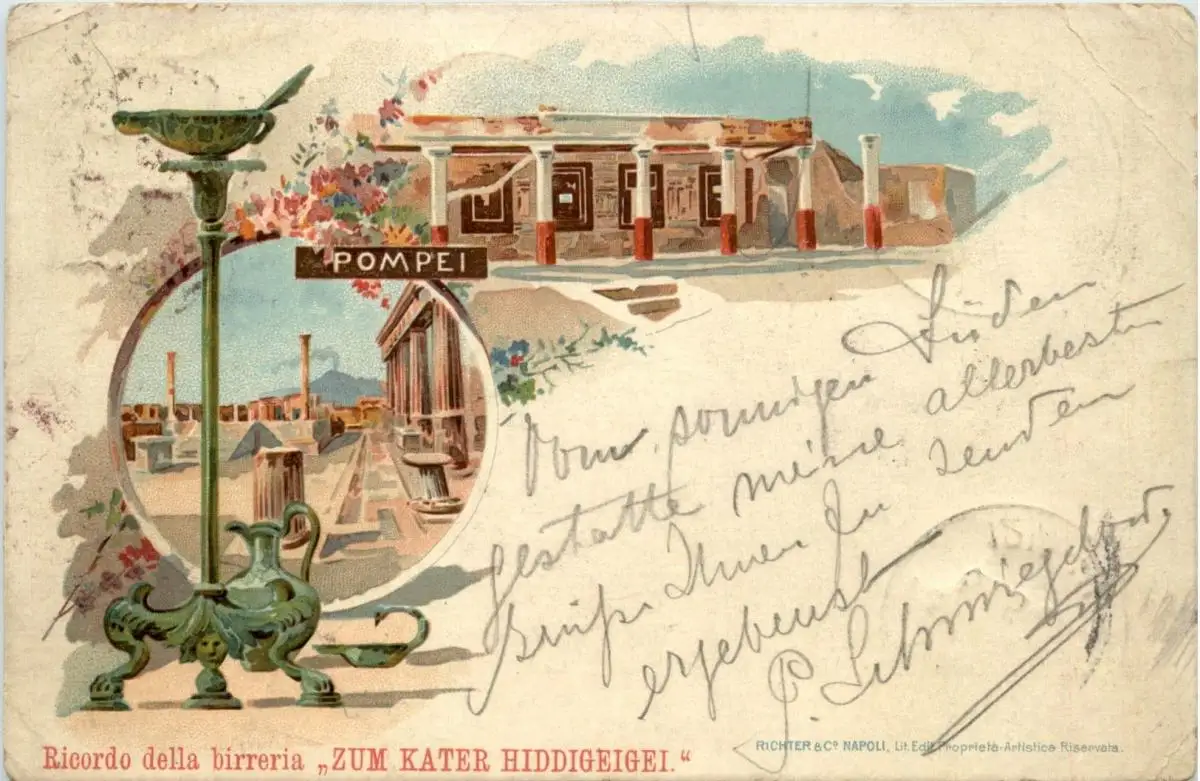 POMPEI
Vom sonnigen Süden
gestatte meine allerbesten
Grüße Ihnen zu senden
ergebenst
P.
Ricordo della birreria „ZUM KATER HIDDIGEIGEI.“
RICHTER & Cº NAPOLI, Lit. Edit. Proprietà Artistica Riservata.